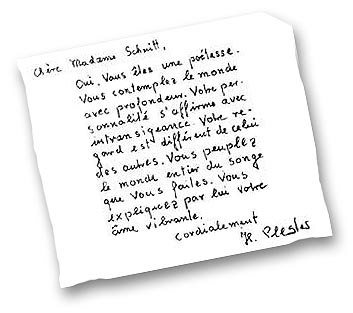 Chère Madame Schmitt,
Oui, Vous êtes une poétesse.
Vous contemplez le monde
avec profondeur. Votre per-
sonnalité s'affirme avec
intransigeance. Votre re-
gard est différent de celui
des autres. Vous peuplez
le monde entier du songe
que Vous faites. Vous
expliquez par lui votre
âme vibrante.
cordialement